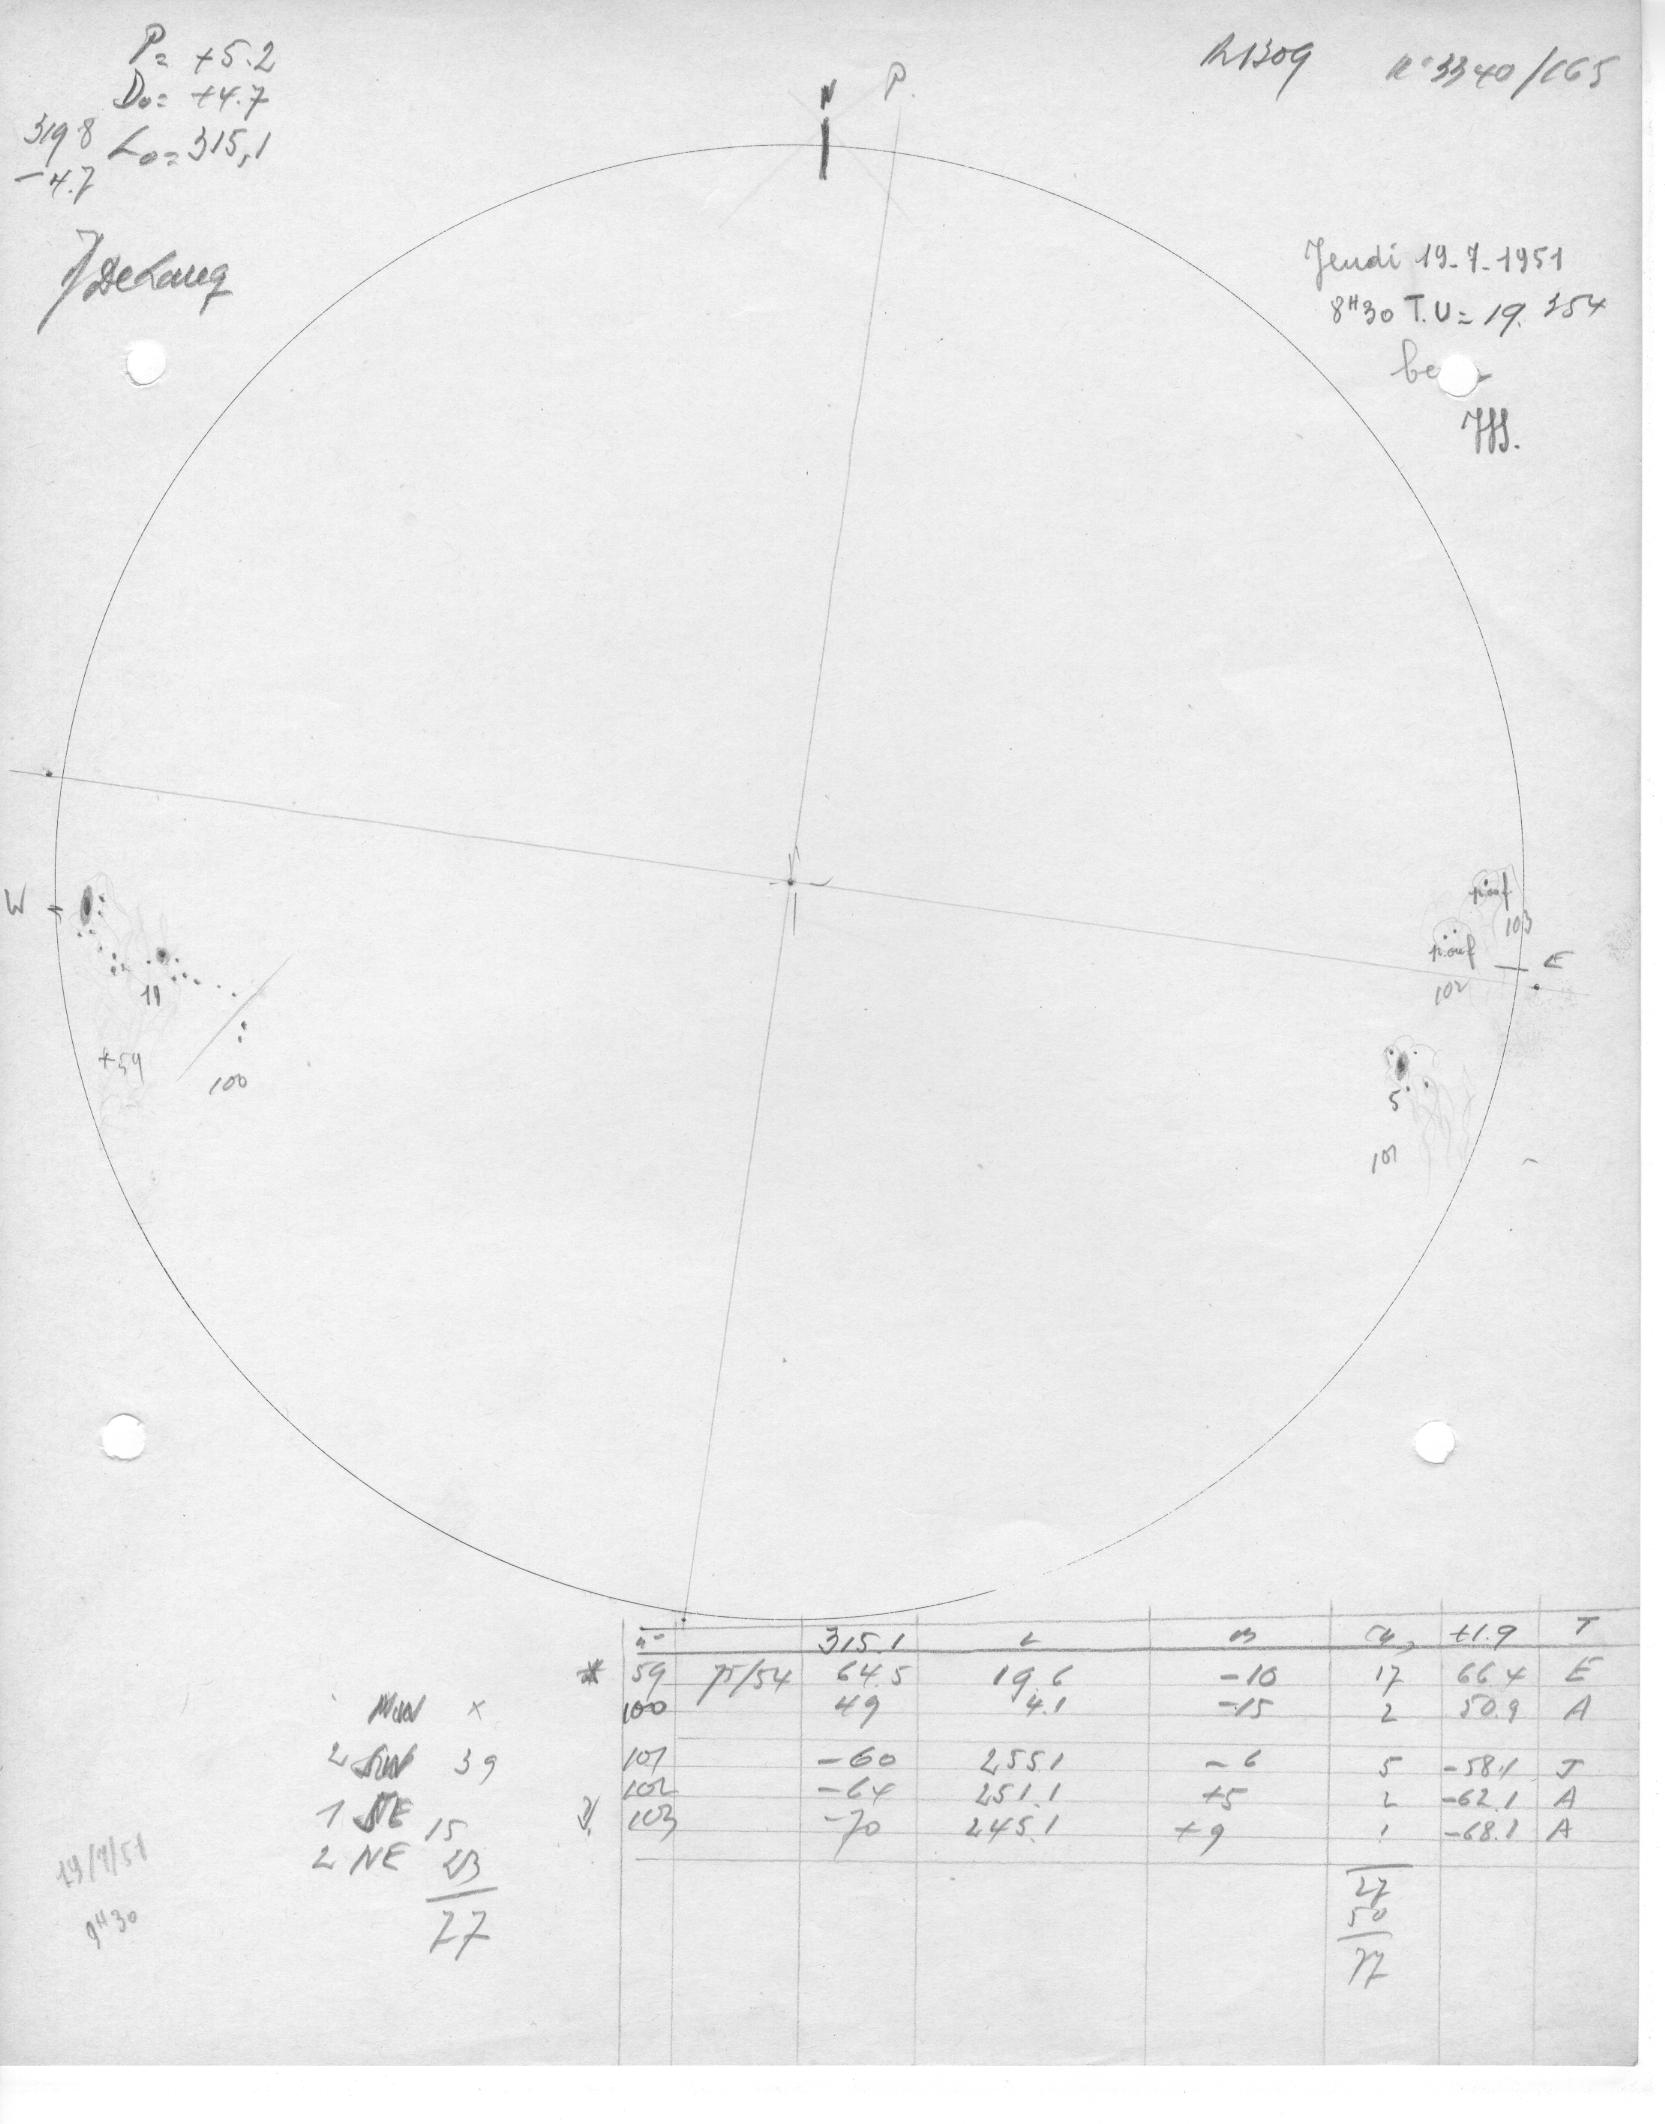 P= +5.2
D₀= +4.7
319 8
-4.7
L₀= 315,1
R1309
n° 3340/165
N
P.
Jeudi 19-7-1951
8H30 T.U = 19. 354
W
E
11
+59
100
pouf
103
pouf
102
5
101
n° 315.1 L 17 +1.9 T
59 64.5 19.6 -10 17 66.4 E
100 49 4.1 -15 2 50.9 A
101 -60 255.1 -6 5 -58.1 J
102 -64 251.1 +5 2 -62.1 A
103 -70 245.1 +9 1 -68.1 A
27
50
77
NW x
2 SW 39
1 SE 15
2 NE 23
77
19/7/51
9H30